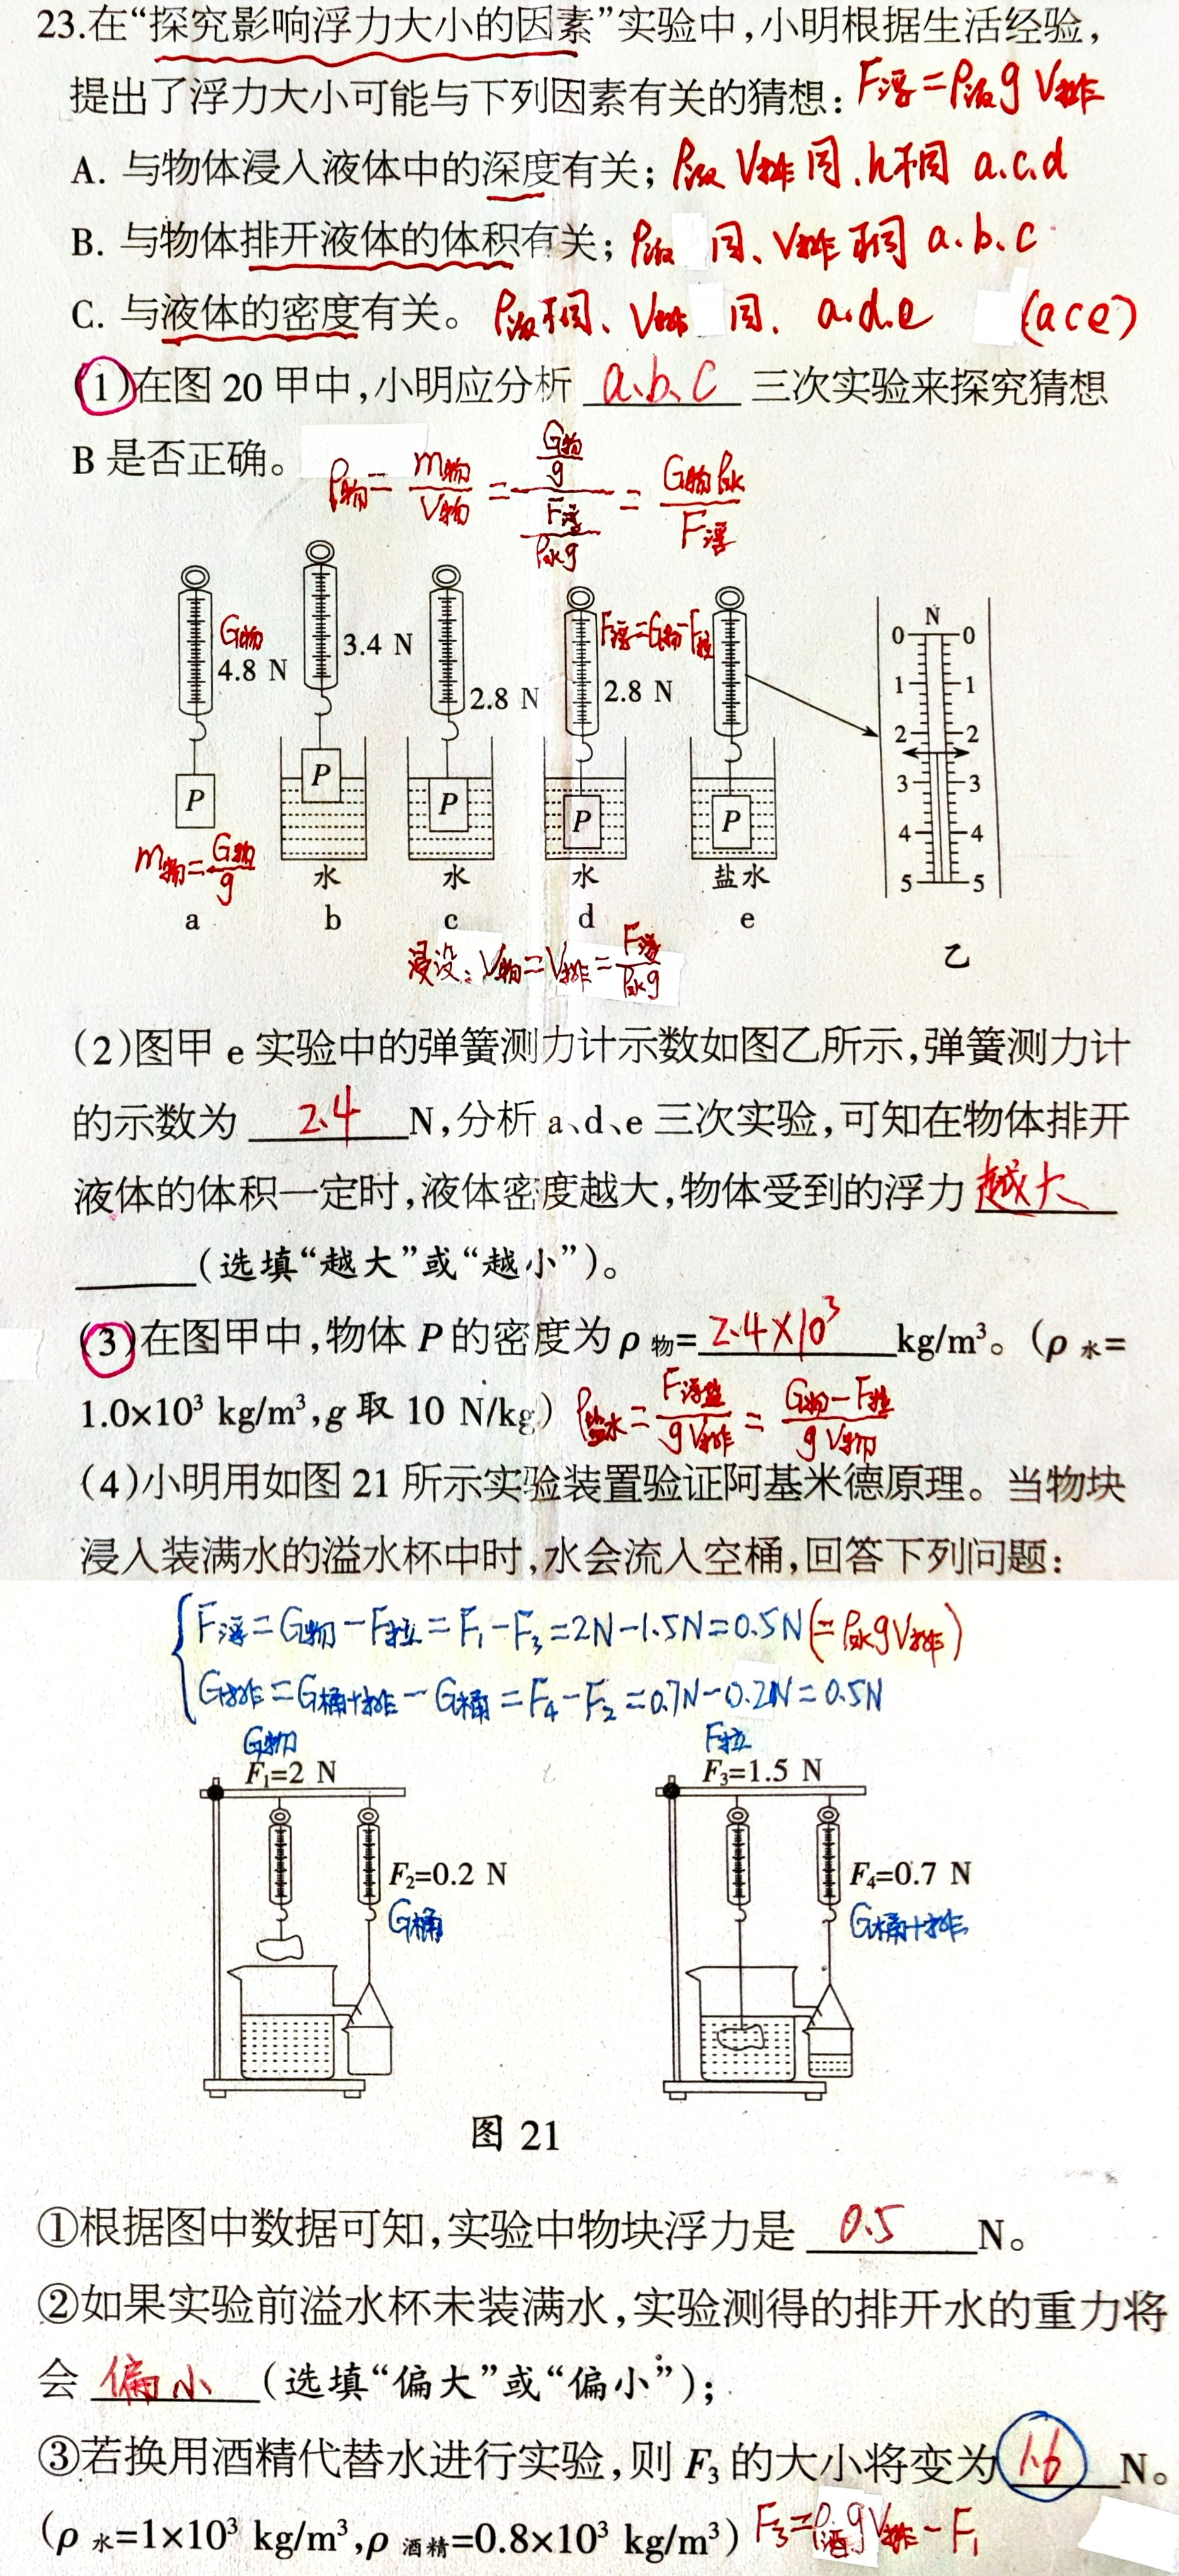 23.在“探究影响浮力大小的因素”实验中,小明根据生活经验,
提出了浮力大小可能与下列因素有关的猜想: F浮=ρ液gV排
A. 与物体浸入液体中的深度有关; ρ液 V排同.h不同 a.c.d
B. 与物体排开液体的体积有关; ρ液 同、V排不同 a.b.c
C. 与液体的密度有关。 ρ液不同、V排 同. a.d.e (ace)
(1)在图 20 甲中,小明应分析 a、b、c 三次实验来探究猜想
B 是否正确。
ρ物=m物/V物=(G物/g)/(F浮/ρ水g)=G物ρ水/F浮
G物
4.8 N
3.4 N
2.8 N
F浮=G物-F拉
2.8 N
N
0 0
1 1
2 2
3 3
4 4
5 5
P P P P P
m物=G物/g
水 水 水 盐水
a b c d e
乙
浸没:V物=V排=F浮/ρ水g
(2)图甲 e 实验中的弹簧测力计示数如图乙所示,弹簧测力计
的示数为 2.4 N,分析 a、d、e 三次实验,可知在物体排开
液体的体积一定时,液体密度越大,物体受到的浮力 越大
(选填“越大”或“越小”)。
(3)在图甲中,物体 P 的密度为 ρ物=2.4×10³ kg/m³。(ρ水=
1.0×10³ kg/m³,g 取 10 N/kg) ρ盐水=F浮盐/gV排=(G物-F拉)/gV物
(4)小明用如图 21 所示实验装置验证阿基米德原理。当物块
浸入装满水的溢水杯中时,水会流入空桶,回答下列问题:
F浮=G物-F拉=F₁-F₃=2N-1.5N=0.5N(=ρ水gV排)
G排=G桶+排-G桶=F₄-F₂=0.7N-0.2N=0.5N
G物
F₁=2 N
F₂=0.2 N
G桶
F拉
F₃=1.5 N
F₄=0.7 N
G桶+排
图 21
①根据图中数据可知,实验中物块浮力是 0.5 N。
②如果实验前溢水杯未装满水,实验测得的排开水的重力将
会 偏小 (选填“偏大”或“偏小”);
③若换用酒精代替水进行实验,则 F₃ 的大小将变为 1.6 N。
(ρ水=1×10³ kg/m³,ρ酒精=0.8×10³ kg/m³) F₃=ρ酒gV排-F₁